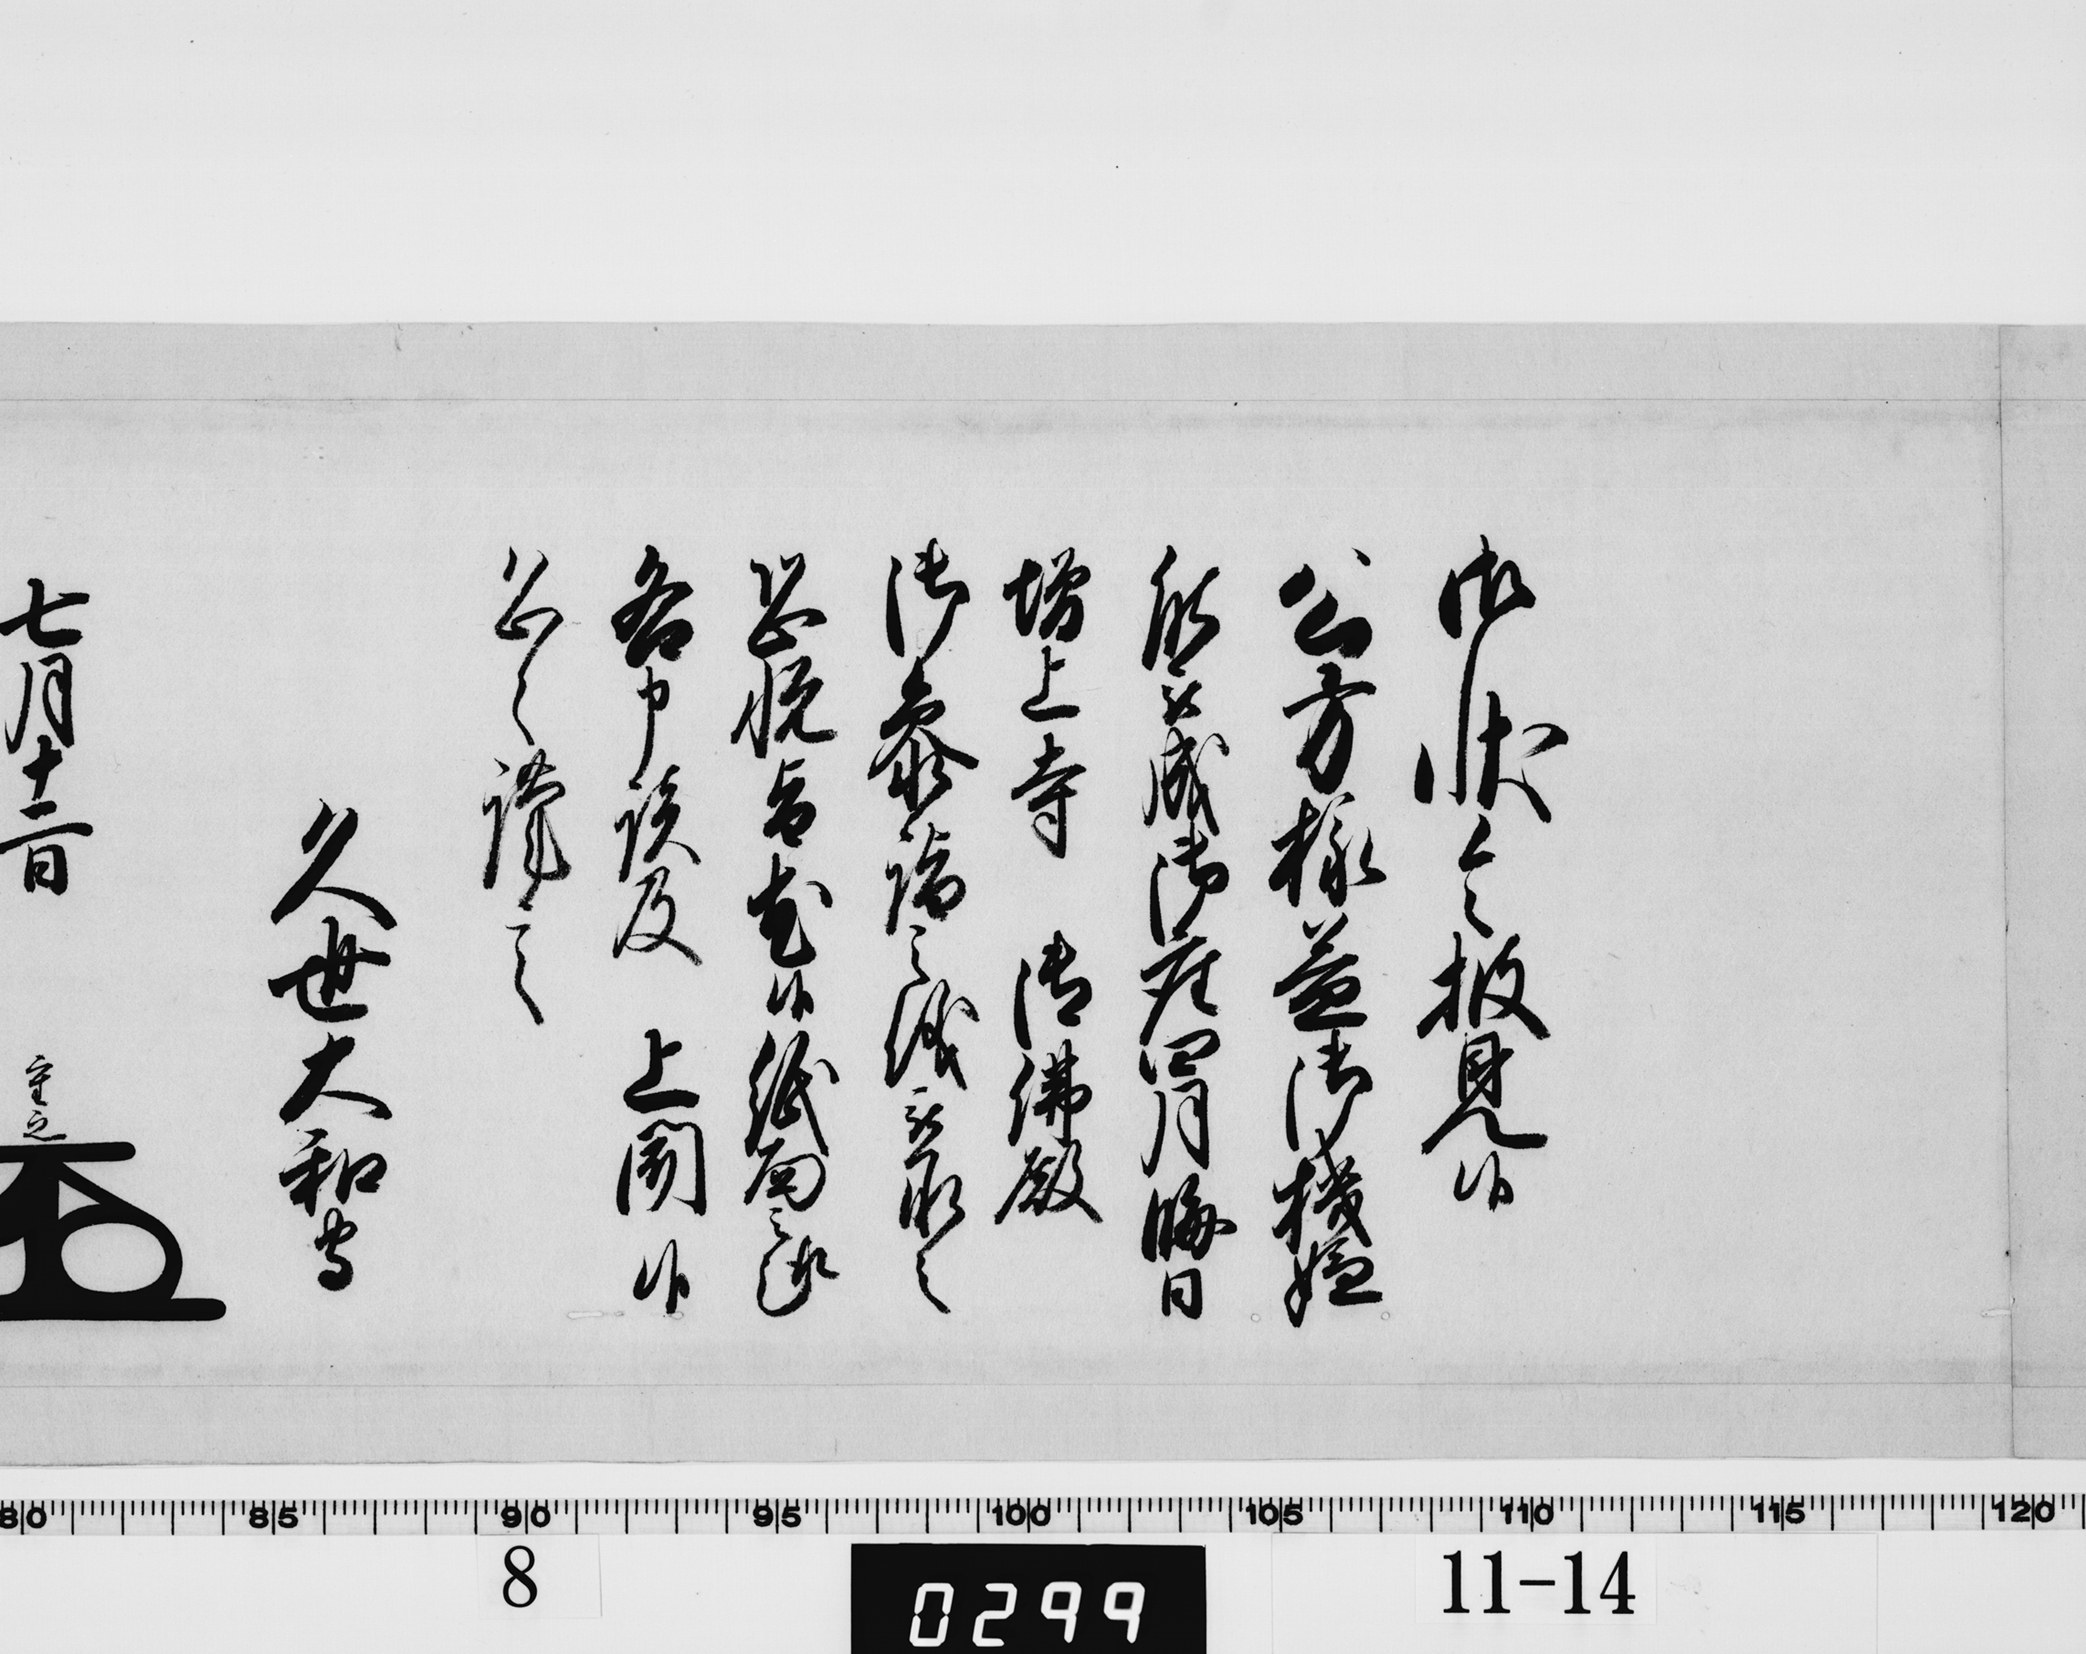 御状令披見候
公方様益御機嫌
能被成御座四月晦日
増上寺　御佛殿
御參詣之儀被承之
恐悦旨尤候紙面之趣
各申談及　上聞候
恐々謹言
久世大和守
七月十二日
重之
80 85 90 95 100 105 110 115 120
8
0299
11-14